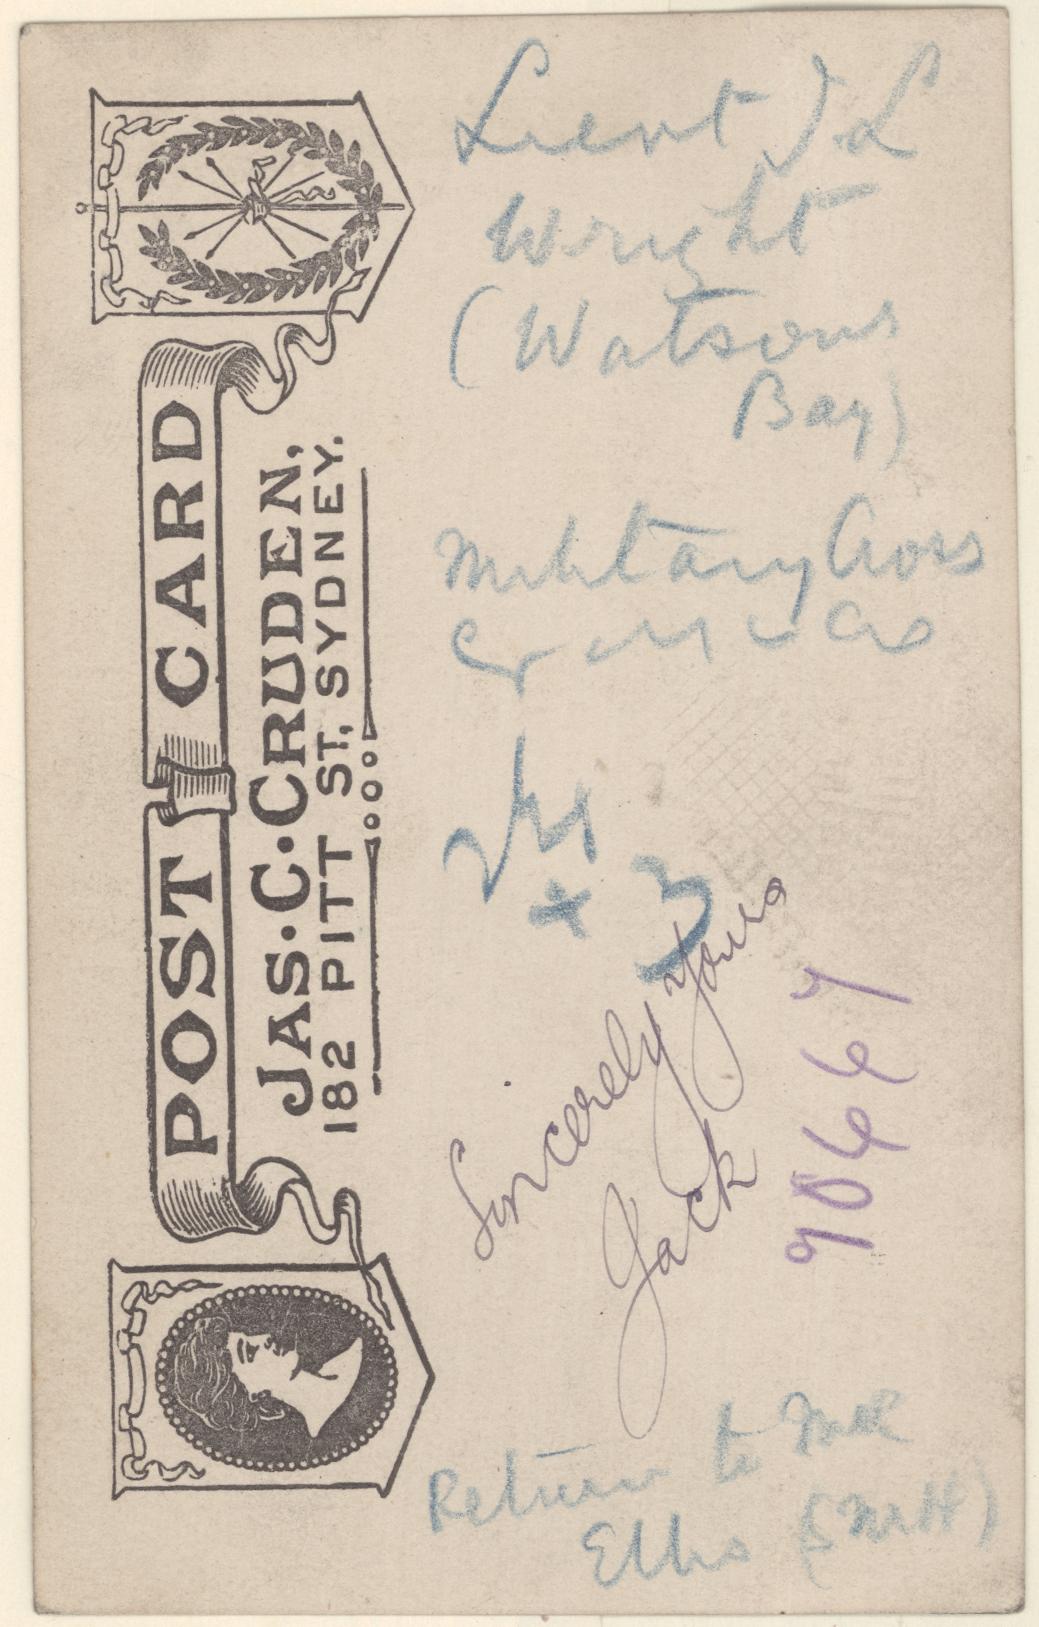 POST CARD
JAS. C. CRUDEN,
182 PITT ST, SYDNEY.
Lieut J. L
Wright
(Watsons
Bay)
Military Cross
3
Sincerely Yours
Jack
70667
Return to
Ellis